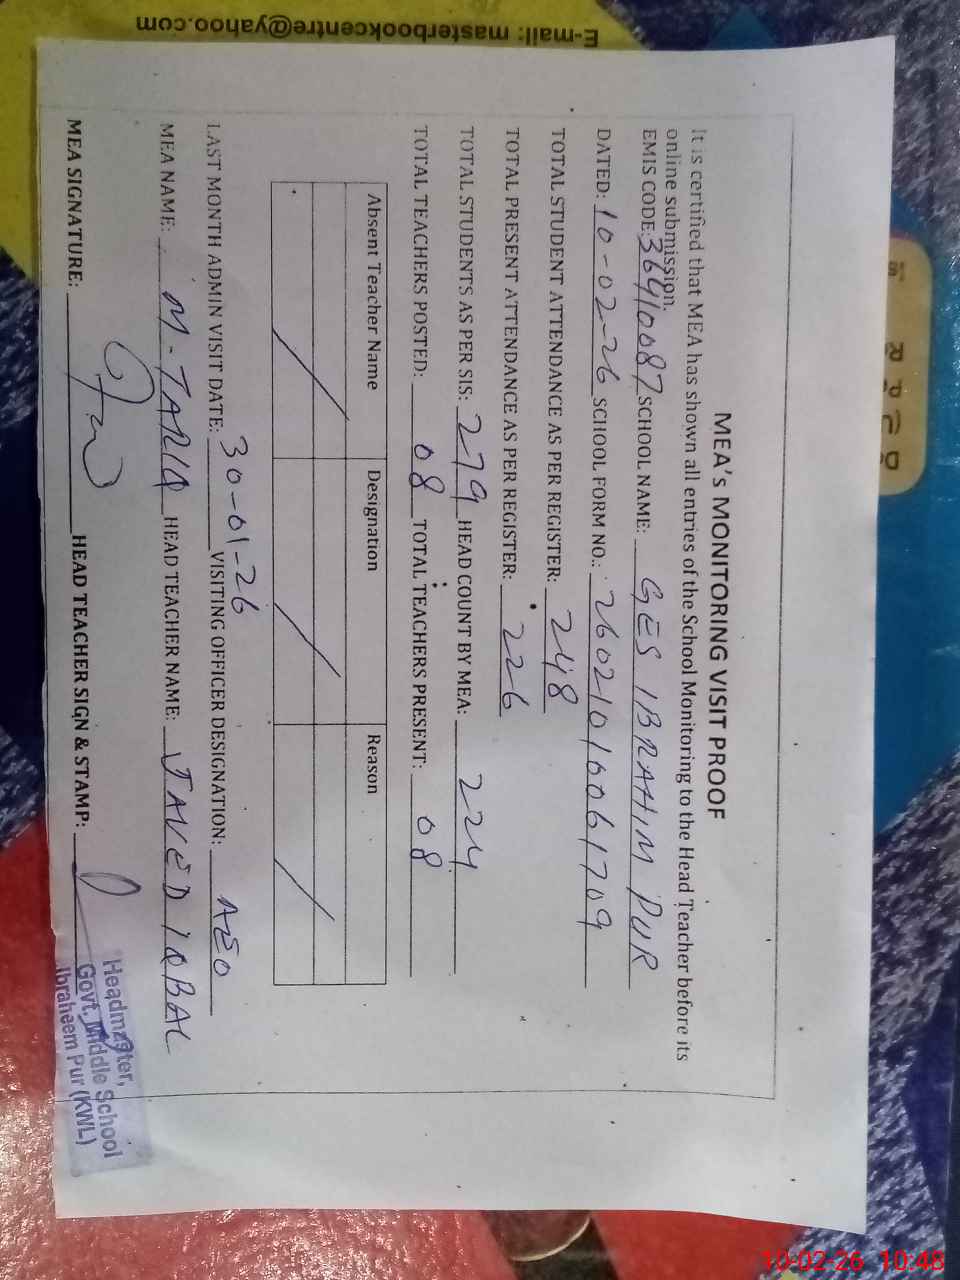 E-mail: masterbookcentre@yahoo.com
MEA's MONITORING VISIT PROOF
It is certified that MEA has shown all entries of the School Monitoring to the Head Teacher before its
online submission.
EMIS CODE: 36410087 SCHOOL NAME: GES IBRAHIM PUR
DATED: 10-02-26 SCHOOL FORM NO.: 2602101606 1709
TOTAL STUDENT ATTENDANCE AS PER REGISTER: 248
TOTAL PRESENT ATTENDANCE AS PER REGISTER: 226
TOTAL STUDENTS AS PER SIS: 279 HEAD COUNT BY MEA: 224
TOTAL TEACHERS POSTED: 08 TOTAL TEACHERS PRESENT: 08
Absent Teacher Name Designation Reason
LAST MONTH ADMIN VISIT DATE: 30-01-26 VISITING OFFICER DESIGNATION: AEO
MEA NAME: M-TARIQ HEAD TEACHER NAME: JAVED IQBAL
MEA SIGNATURE: HEAD TEACHER SIGN & STAMP:
Headmaster,
Govt. Middle School
Ibraheem Pur (KWL)
10-02-26 10:48